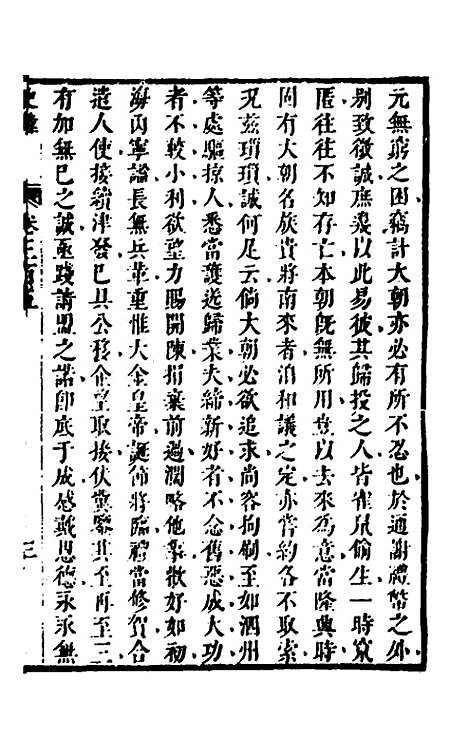 元無窮之困竊計大朝亦必有所不忍也於通謝禮幣之外
別致微誠庶幾以此易彼其歸投之人皆雀鼠偷生一時竄
匿往往不知存亡本朝旣無所用豈以去來為意當隆興時
固有大朝名族貴將南來者洎和議之定亦嘗約各不取索
况兹瑣瑣誠何足云倘大朝必欲追求尚容拘刷至如泗州
等處驅掠人悉當護送歸業夫締新好者不念舊惡成大功
者不較小利欲望力賜開陳捐棄前過濶略他事敦好如初
海內寧謐長無兵革重惟大金皇帝誕節將臨禮當修賀合
遣人使接續津發已具公移企望取接伏冀鑒其至再至三
有加無已之誠亟踐請盟之諾即底于成感戴恩德永永無
史 卷三百五
三